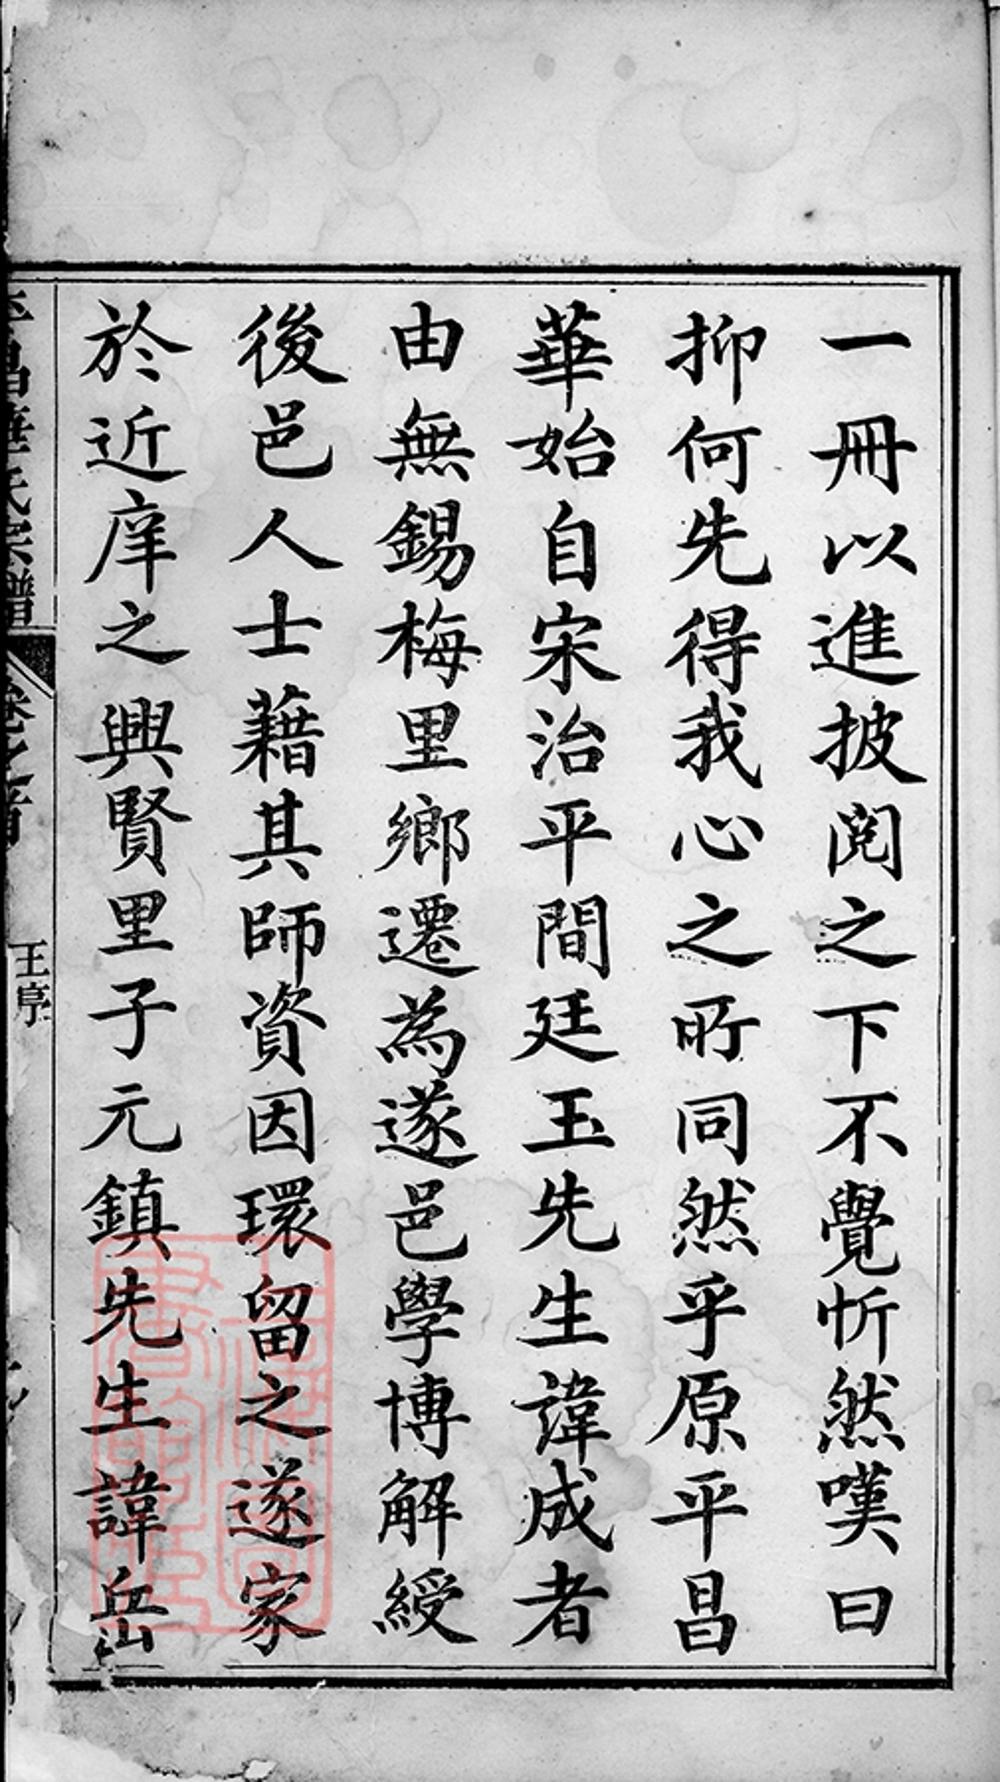 一冊以進披閱之下不覺忻然嘆曰
抑何先得我心之所同然乎原平昌
華始自宋治平間廷玉先生諱成者
由無錫梅里鄉遷為遂邑學博解綬
後邑人士藉其師資因環留之遂家
於近庠之興賢里子元鎮先生諱岳
平昌華氏宗譜 卷之首 王序